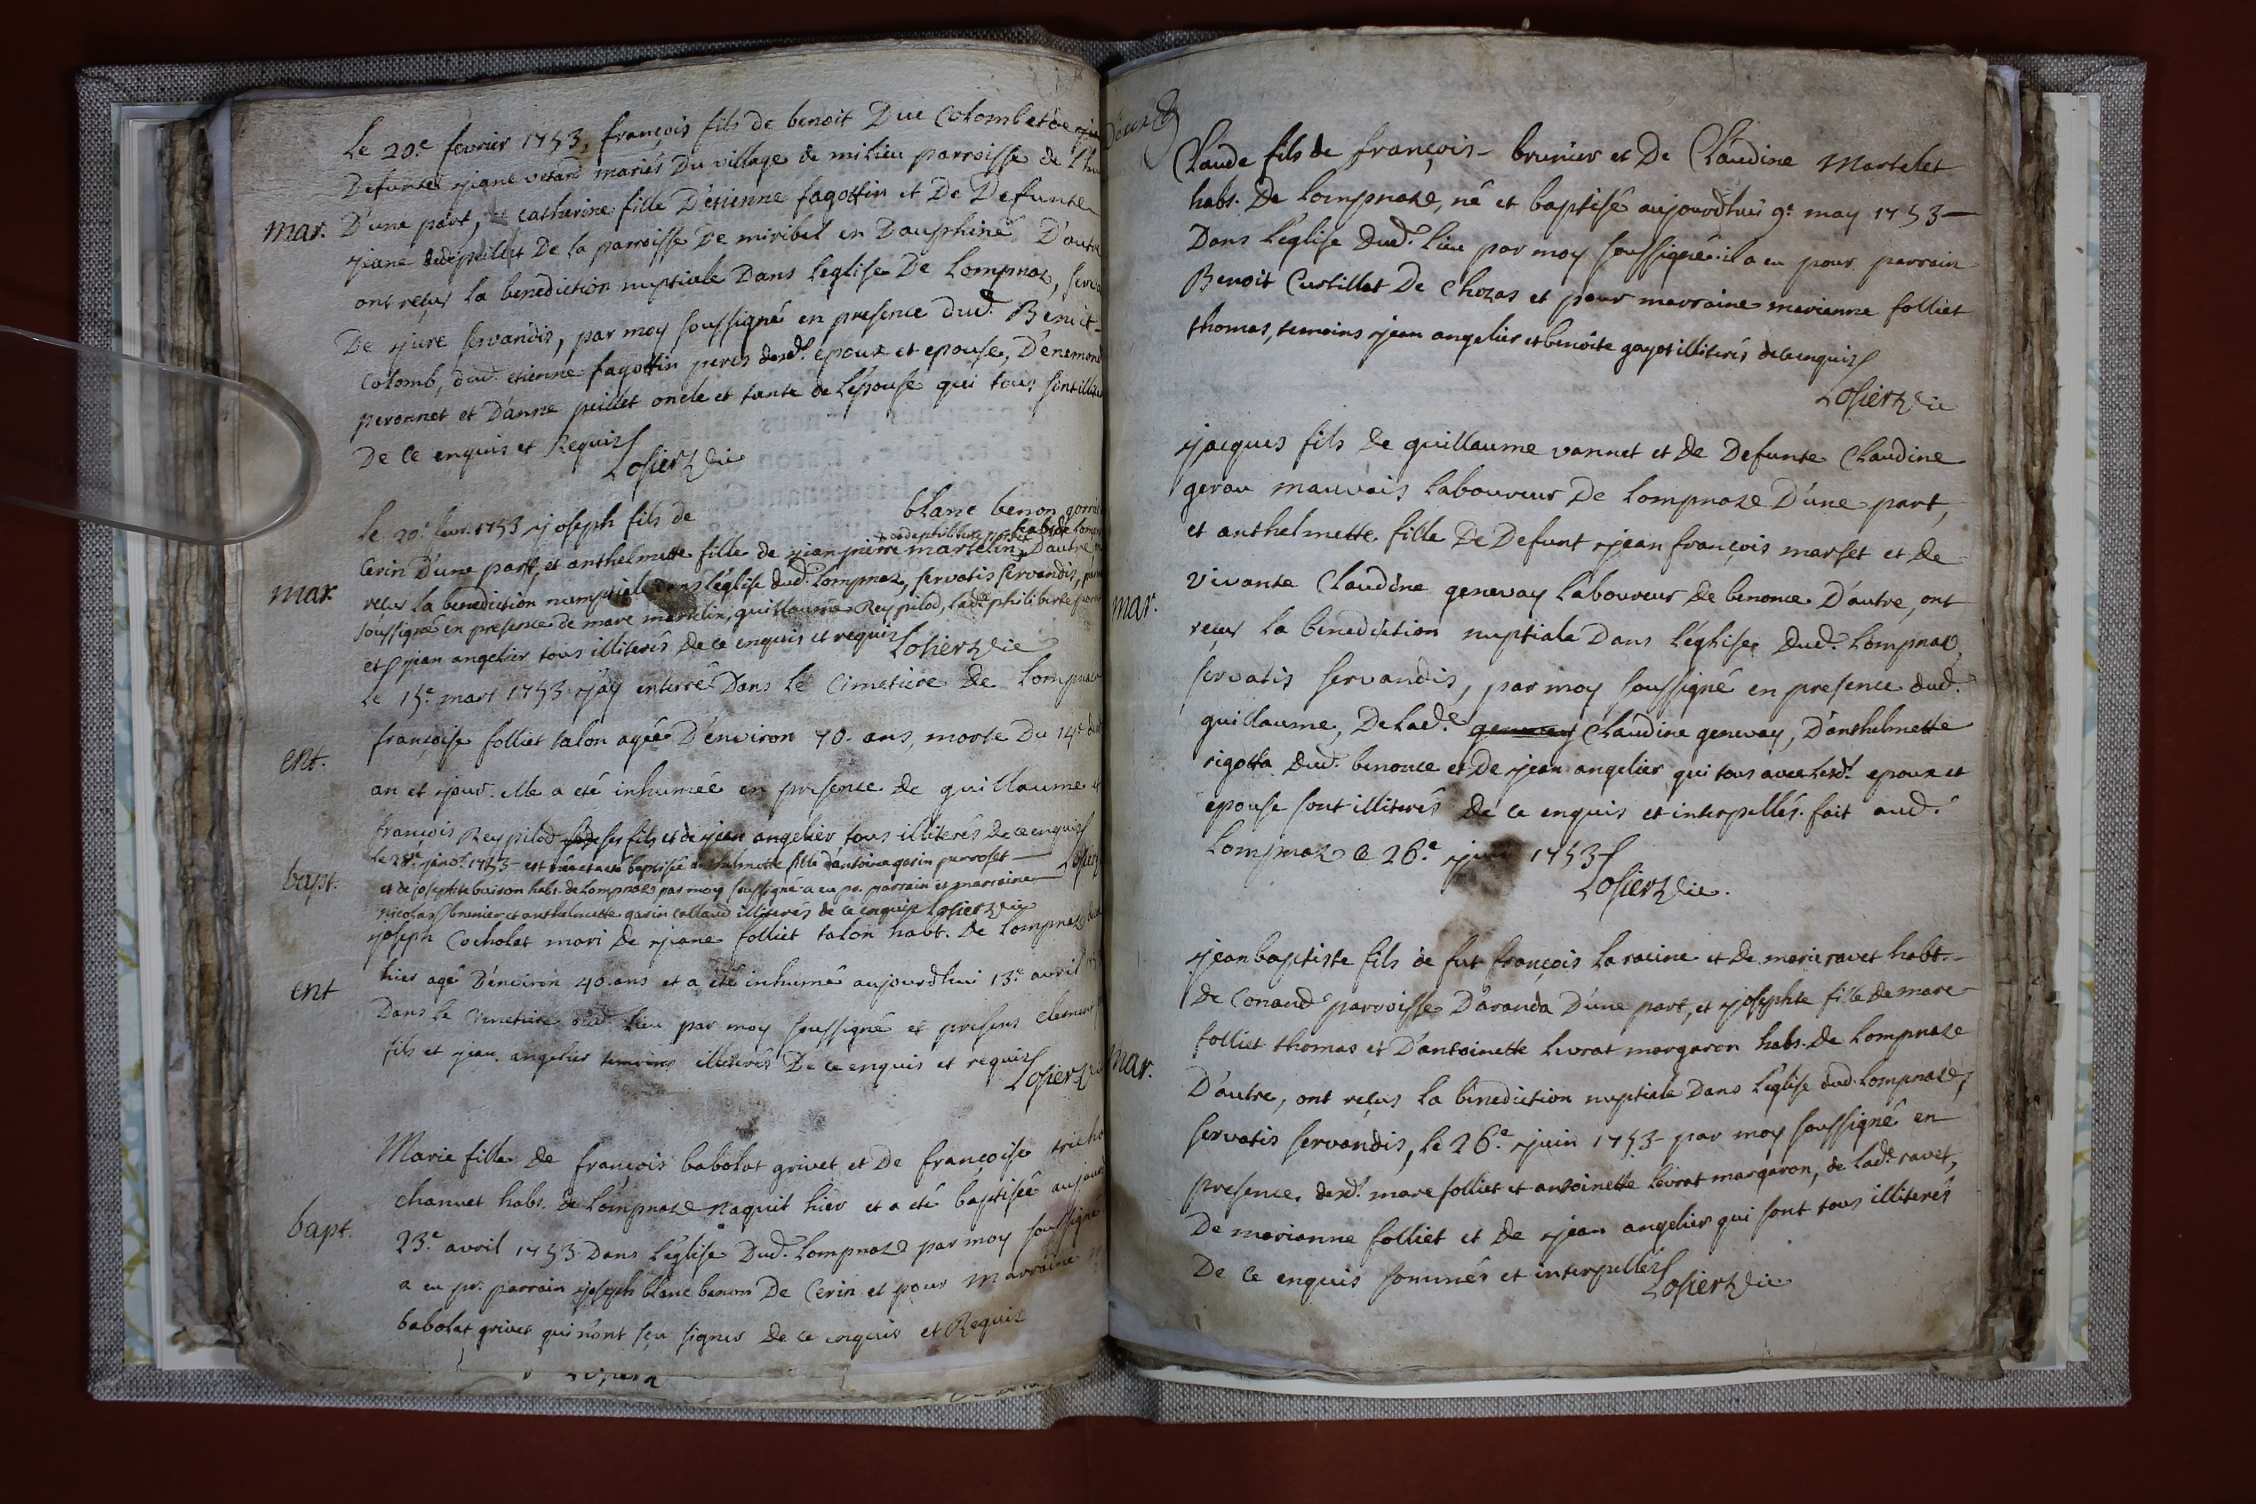 Le 20.e fevrier 1753, françois fils de benoit Duc Colomb et de
Defunte jane vetard mariés Du village de milieu parroisse de
mar. D'une part, et catherine fille D'etienne fagottin et De Defunte
jeane puillet De la parroisse De miribel en Dauphiné D'autre
ont reçus la benediction nuptiale Dans leglise De Lompnaz,
De jure servandis, par moy soussigné en presence dud. Benoit
Colomb, dud. etienne fagottin peres desd. epoux et epouse, D'enemond
peronnet et D'anne puillet oncle et tante de Lépouse qui tous
De ce enquis et Requis
Losier vic
Le 20. 1753 joseph fils de blanc benon
Cerin D'une part, et anthelmette fille de jean pierre martelin, D'autre
mar. reçus la benediction numptiale dans léglise dud. Lompnaz, servatis servandis,
soussigné en presence de marc martelin, guillaume Rey pilod, lad. philiberte
et jean angelier tous illiterés De ce enquis et requis Losier vic
Le 15.e mars 1753 j'ay enterré Dans le Cimetiere de Lompnaz
françoise folliet talon agée D'environ 70. ans, morte Du 14e
ent. an et jour. elle a eté inhumée en presence de guillaume et
françois Rey pilod ses fils et de jean angelier tous illiterés de ce enquis
bapt. Le 28e 1753 est née et a eté baptisée anthelmette fille d'antoine garin perroset Losier
et de josephte buison habs. de Lompnaz par moy soussigné a eu pr. parrain et marraine
nicolas brunier et anthelmette garin collaud illiterés de ce enquis Losier vic
joseph Cocholat mari De jeane folliet talon habt. De Lompnaz
ent hier agé D'environ 40 ans et a eté inhumé aujourdhui 13.e avril
Dans le Cimetiere dud. lieu par moy soussigné et presens clement
fils et jean angelier temoins illiterés De ce enquis et requis
Losier
Marie fille de françois babolat grivet et De françoise
chanuet habs. de Lompnaz naquit hier et a eté baptisée
bapt. 23.e avril 1753 Dans l'église Dud. Lompnaz par moy soussigné
a eu pr. parrain joseph blanc benon De Cerin et pour marraine
babolat grivet qui n'ont sçu signer de ce enquis et Requis
Claude fils de françois brunier et De Claudine Martelet
habs. De Lompnaz, né et baptisé aujourdhui 9.e may 1753
Dans l'église dud. lieu par moy soussigné. il a eu pour parrain
Benoit Curtillet De Chozas et pour marraine marianne folliet
thomas, temoins jean angelier et benoite gayet illiterés de ce enquis
Losier vic
jacques fils de guillaume vannet et de Defunte Claudine
gerau mauvais laboureur De Lompnaz D'une part,
et anthelmette fille De Defunt jean françois marset et de
vivante Claudine genevay laboureur de benonce D'autre, ont
mar. reçus la benediction nuptiale Dans l'église Dud. Lompnaz,
servatis servandis, par moy soussigné en presence dud.
guillaume, De lad.e genevay Claudine genevay, D'anthelmette
rigotta dud. benonce et De jean angelier qui tous avec lesd. epoux et
epouse sont illiterés De ce enquis et interpellés. fait aud.
Lompnaz le 26.e 1753
Losier vic.
jean baptiste fils de fut françois la racine et de marie ravet habt.
de Conand parroisse D'aranda D'une part, et josephte fille de marc
folliet thomas et D'antoinette Livrat margaron habs. de Lompnaz
mar. D'autre, ont reçus la benediction nuptiale Dans l'église dud. Lompnaz,
servatis servandis, le 26.e juin 1753 par moy soussigné en
presence desd. marc folliet et antoinette Livrat margaron, de lad.e ravet,
De marianne folliet et de jean angelier qui sont tous illiterés
De ce enquis sommés et interpellés
Losier vic